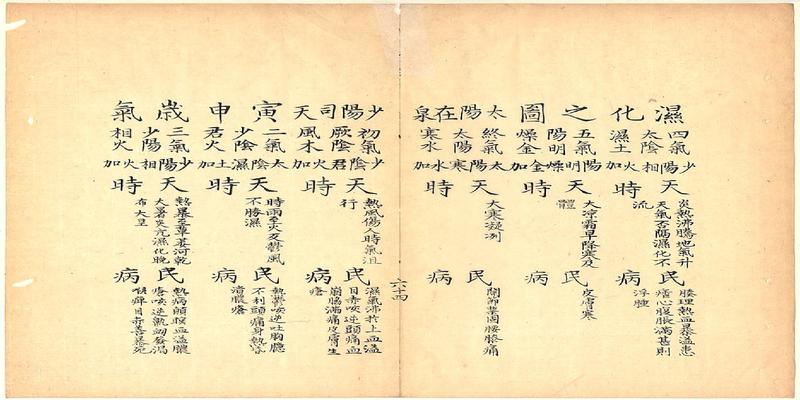 濕化之圖太陽在泉
四氣太陰濕土
少陽相火加
天時
炎熱沸騰地氣升
天氣否隔濕化不
流
民病
腠理熱血暴溢患
瘧心腹脹滿甚則
浮腫
五氣陽明燥金
陽明燥金加
天時
大凉霜早降寒及
體
民病
皮膚寒
終氣太陽寒水
太陽寒水加
天時
大寒凝冽
民病
關節禁固腰膝痛
六十四
少陽司天寅申歲氣
初氣厥陰風木
少陰君火加
天時
熱風傷人時氣沮
行
民病
濕氣沸於上血溢
目赤咳逆頭痛血
崩脇滿痛皮膚生
瘡
二氣少陰君火
太陰濕土加
天時
時雨至火反鬱風
不勝濕
民病
熱鬱咳逆吐胸臆
不利頭痛身熱昏
膿瘡
三氣少陽相火
少陽相火加
天時
熱暴至草萎河乾
大暑炎亢濕化晚
布大旱
民病
熱病血溢膿
瘡咳逆鼽衄發渴
喉痺目赤善暴死